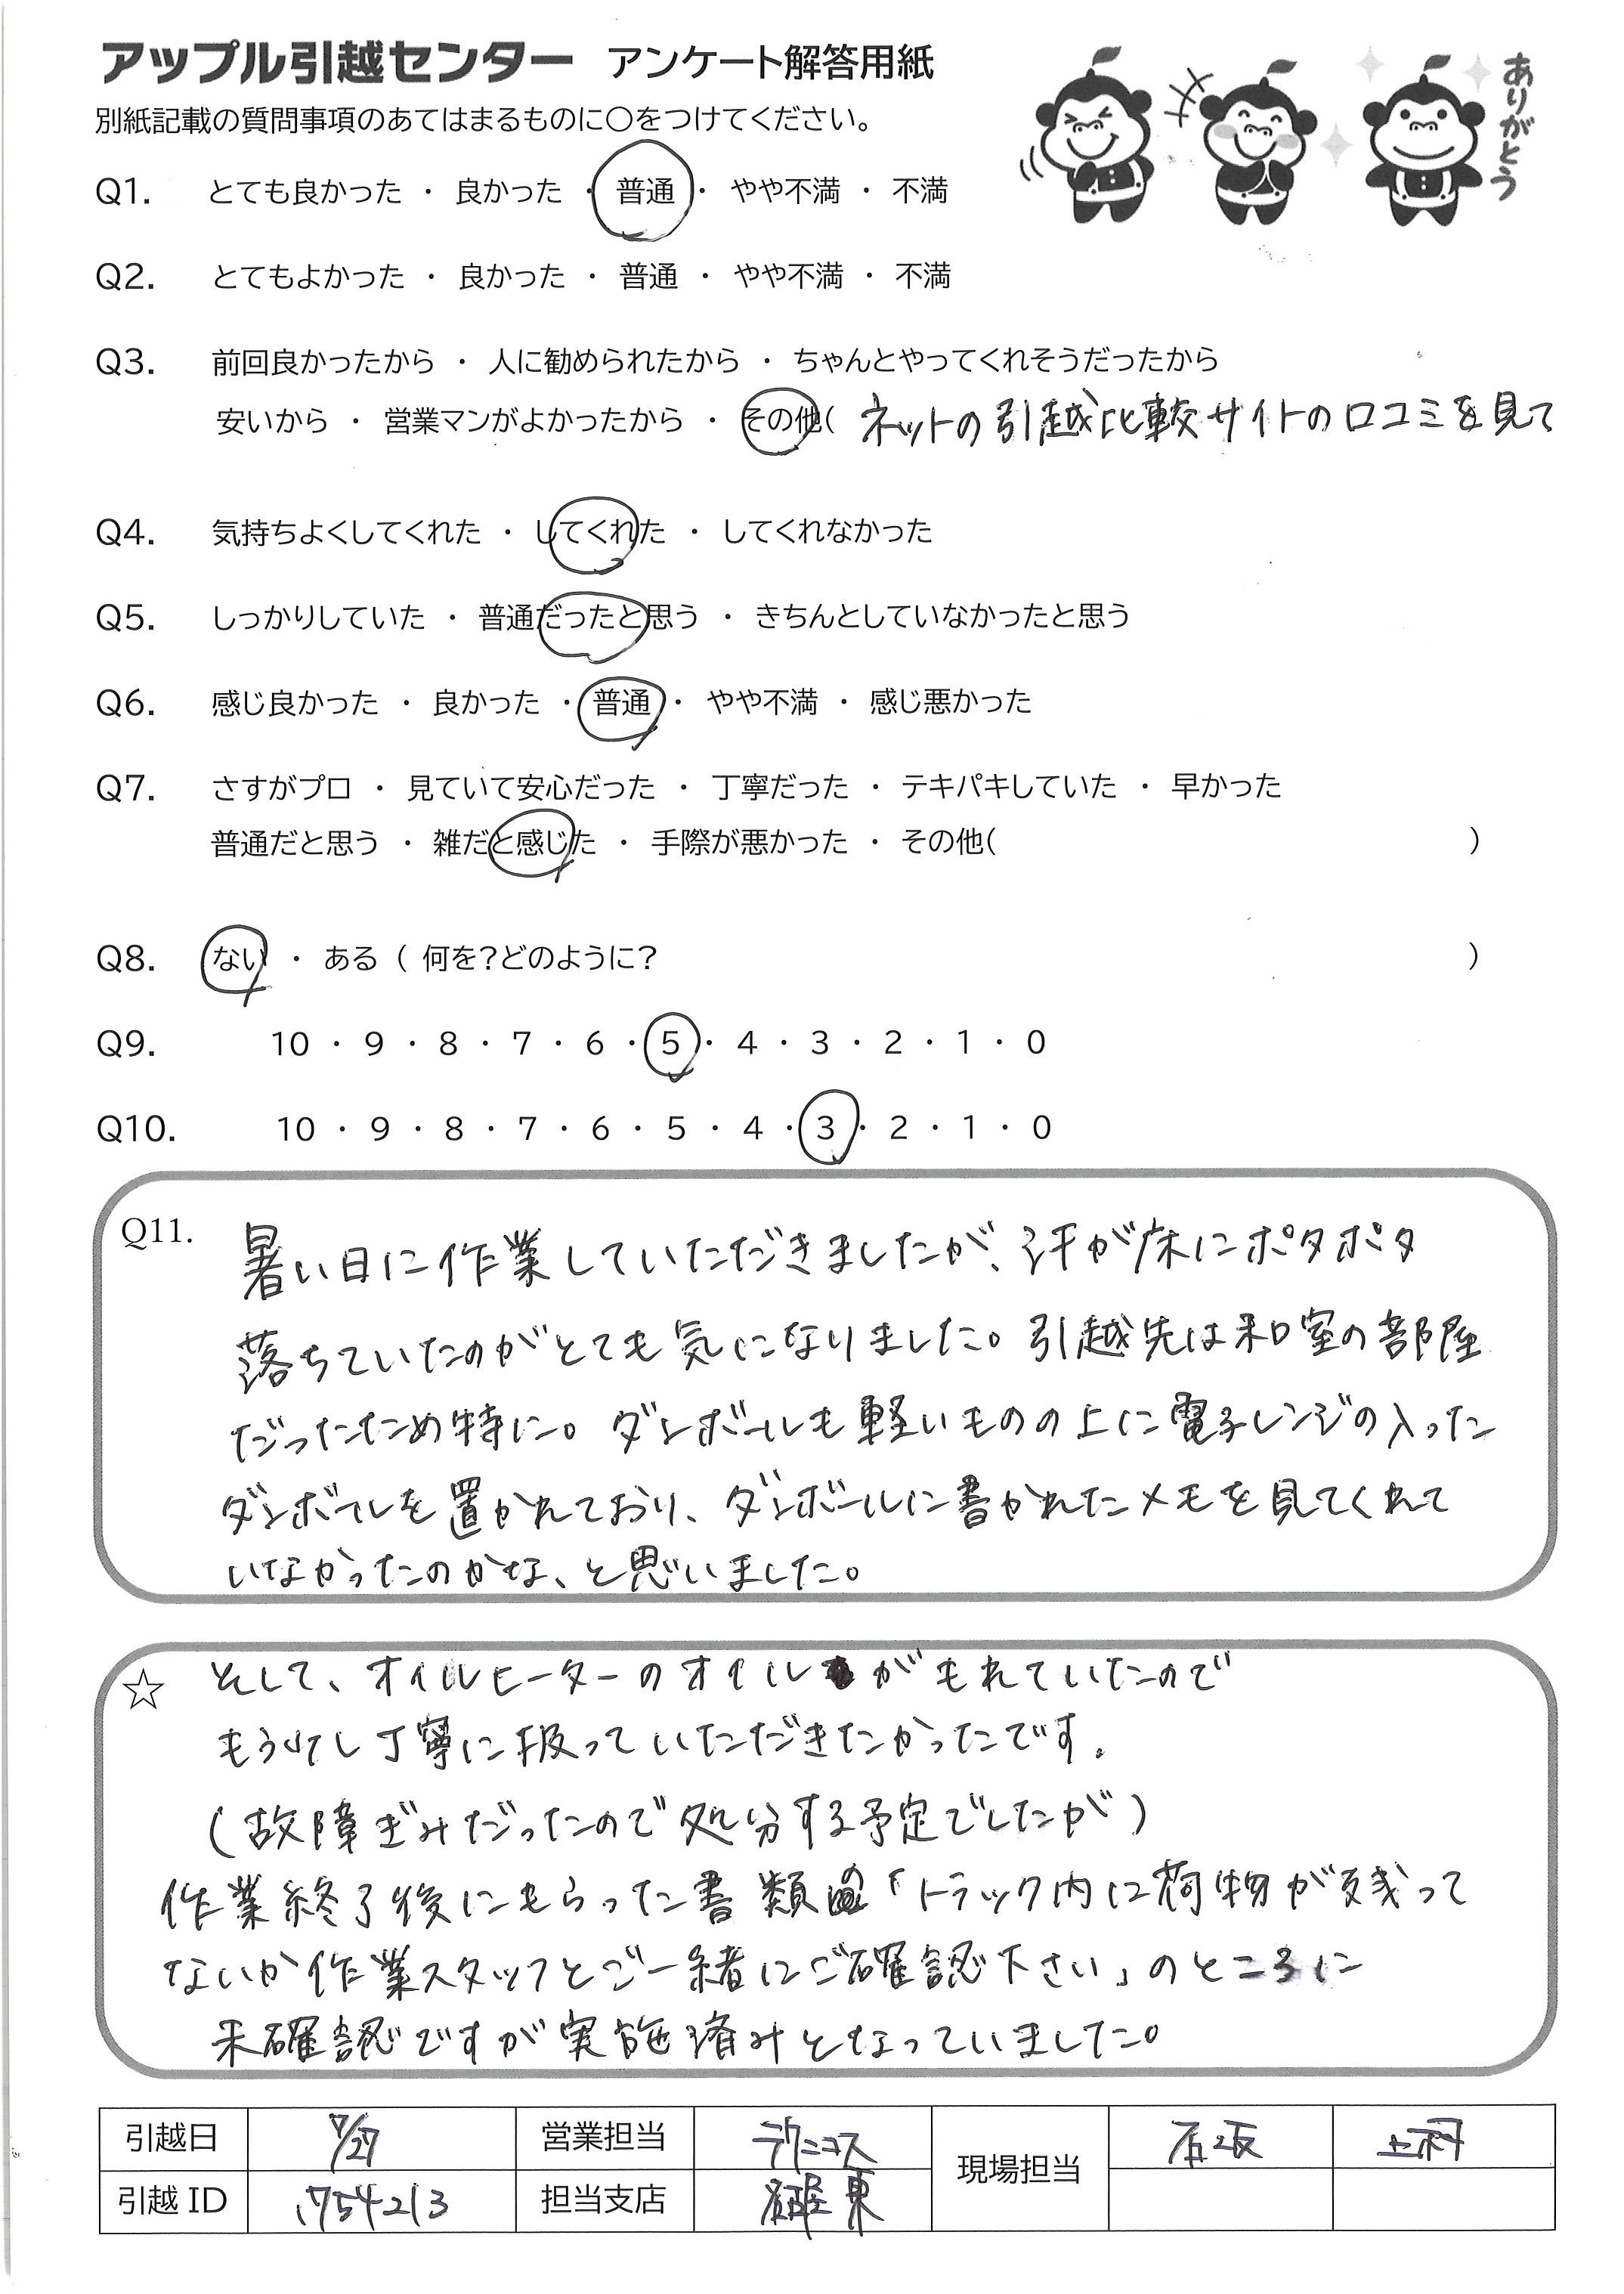 アップル引越センター アンケート解答用紙
ありがとう
別紙記載の質問事項のあてはまるものに○をつけてください。
Q1. とても良かった ・ 良かった ・ 普通 ・ やや不満 ・ 不満
Q2. とてもよかった ・ 良かった ・ 普通 ・ やや不満 ・ 不満
Q3. 前回良かったから ・ 人に勧められたから ・ ちゃんとやってくれそうだったから
安いから ・ 営業マンがよかったから ・ その他( ネットの引越比較サイトの口コミを見て
Q4. 気持ちよくしてくれた ・ してくれた ・ してくれなかった
Q5. しっかりしていた ・ 普通だったと思う ・ きちんとしていなかったと思う
Q6. 感じ良かった ・ 良かった ・ 普通 ・ やや不満 ・ 感じ悪かった
Q7. さすがプロ ・ 見ていて安心だった ・ 丁寧だった ・ テキパキしていた ・ 早かった
普通だと思う ・ 雑だと感じた ・ 手際が悪かった ・ その他( )
Q8. ない ・ ある ( 何を?どのように? )
Q9. 10 ・ 9 ・ 8 ・ 7 ・ 6 ・ 5 ・ 4 ・ 3 ・ 2 ・ 1 ・ 0
Q10. 10 ・ 9 ・ 8 ・ 7 ・ 6 ・ 5 ・ 4 ・ 3 ・ 2 ・ 1 ・ 0
Q11. 暑い日に作業していただきましたが、汗が床にポタポタ
落ちていたのがとても気になりました。引越先は和室の部屋
だったため特に。ダンボールも軽いものの上に電子レンジの入った
ダンボールを置かれており、ダンボールに書かれたメモを見てくれて
いなかったのかな、と思いました。
☆ そして、オイルヒーターのオイルがもれていたので
もう少し丁寧に扱っていただきたかったです。
(故障ぎみだったので処分する予定でしたが)
作業終了後にもらった書類の「トラック内に荷物が残って
ないか作業スタッフとご一緒にご確認下さい」のところに
未確認ですが実施済みとなっていました。
引越日 7/27 営業担当 テクニコス 現場担当 石坂 上村
引越ID 1754213 担当支店 名古屋東